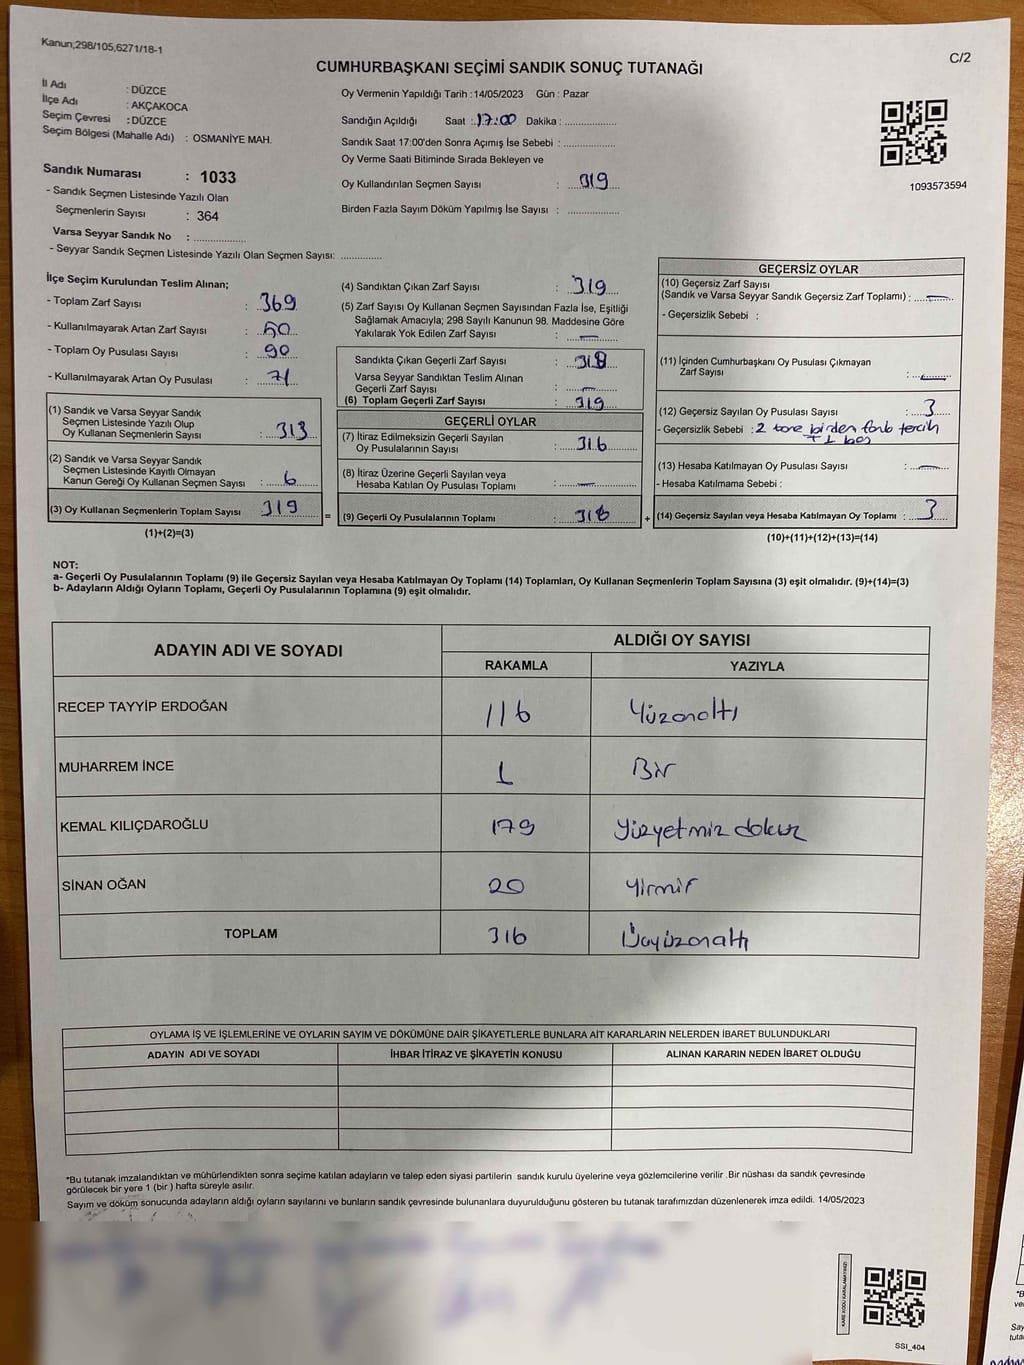 Kanun;298/105,6271/18-1
C/2
CUMHURBAŞKANI SEÇİMİ SANDIK SONUÇ TUTANAĞI
İl Adı : DÜZCE
İlçe Adı : AKÇAKOCA
Seçim Çevresi : DÜZCE
Seçim Bölgesi (Mahalle Adı) : OSMANİYE MAH.
Sandık Numarası : 1033
- Sandık Seçmen Listesinde Yazılı Olan
Seçmenlerin Sayısı : 364
Varsa Seyyar Sandık No : ................
- Seyyar Sandık Seçmen Listesinde Yazılı Olan Seçmen Sayısı: .............
Oy Vermenin Yapıldığı Tarih :14/05/2023 Gün : Pazar
Sandığın Açıldığı Saat : 17:00 Dakika : ................
Sandık Saat 17:00'den Sonra Açımış İse Sebebi : ................
Oy Verme Saati Bitiminde Sırada Bekleyen ve
Oy Kullandırılan Seçmen Sayısı : 319
Birden Fazla Sayım Döküm Yapılmış İse Sayısı : ................
1093573594
İlçe Seçim Kurulundan Teslim Alınan;
- Toplam Zarf Sayısı : 369
- Kullanılmayarak Artan Zarf Sayısı : 50
- Toplam Oy Pusulası Sayısı : 90
- Kullanılmayarak Artan Oy Pusulası : 71
(1) Sandık ve Varsa Seyyar Sandık
Seçmen Listesinde Yazılı Olup
Oy Kullanan Seçmenlerin Sayısı : 313
(2) Sandık ve Varsa Seyyar Sandık
Seçmen Listesinde Kayıtlı Olmayan
Kanun Gereği Oy Kullanan Seçmen Sayısı : 6
(3) Oy Kullanan Seçmenlerin Toplam Sayısı 319
(1)+(2)=(3)
(4) Sandıktan Çıkan Zarf Sayısı : 319
(5) Zarf Sayısı Oy Kullanan Seçmen Sayısından Fazla İse, Eşitliği
Sağlamak Amacıyla; 298 Sayılı Kanunun 98. Maddesine Göre
Yakılarak Yok Edilen Zarf Sayısı : —
Sandıkta Çıkan Geçerli Zarf Sayısı : 319
Varsa Seyyar Sandıktan Teslim Alınan
Geçerli Zarf Sayısı : —
(6) Toplam Geçerli Zarf Sayısı : 319
GEÇERLİ OYLAR
(7) İtiraz Edilmeksizin Geçerli Sayılan
Oy Pusulalarının Sayısı : 316
(8) İtiraz Üzerine Geçerli Sayılan veya
Hesaba Katılan Oy Pusulası Toplamı : —
= (9) Geçerli Oy Pusulalarının Toplamı : 316
GEÇERSİZ OYLAR
(10) Geçersiz Zarf Sayısı
(Sandık ve Varsa Seyyar Sandık Geçersiz Zarf Toplamı) : —
- Geçersizlik Sebebi :
(11) İçinden Cumhurbaşkanı Oy Pusulası Çıkmayan
Zarf Sayısı : —
(12) Geçersiz Sayılan Oy Pusulası Sayısı : 3
- Geçersizlik Sebebi : 2 tane birden fazla tercih
+1 boş
(13) Hesaba Katılmayan Oy Pusulası Sayısı : —
- Hesaba Katılmama Sebebi :
+ (14) Geçersiz Sayılan veya Hesaba Katılmayan Oy Toplamı : 3
(10)+(11)+(12)+(13)=(14)
NOT:
a- Geçerli Oy Pusulalarının Toplamı (9) ile Geçersiz Sayılan veya Hesaba Katılmayan Oy Toplamı (14) Toplamları, Oy Kullanan Seçmenlerin Toplam Sayısına (3) eşit olmalıdır. (9)+(14)=(3)
b- Adayların Aldığı Oyların Toplamı, Geçerli Oy Pusulalarının Toplamına (9) eşit olmalıdır.
ADAYIN ADI VE SOYADI ALDIĞI OY SAYISI
RAKAMLA YAZIYLA
RECEP TAYYİP ERDOĞAN 116 Yüzonaltı
MUHARREM İNCE 1 Bir
KEMAL KILIÇDAROĞLU 179 Yüzyetmiz dokuz
SİNAN OĞAN 20 Yirmir
TOPLAM 316 Üçyüzonaltı
OYLAMA İŞ VE İŞLEMLERİNE VE OYLARIN SAYIM VE DÖKÜMÜNE DAİR ŞİKAYETLERLE BUNLARA AİT KARARLARIN NELERDEN İBARET BULUNDUKLARI
ADAYIN ADI VE SOYADI İHBAR İTİRAZ VE ŞİKAYETİN KONUSU ALINAN KARARIN NEDEN İBARET OLDUĞU
*Bu tutanak imzalandıktan ve mühürlendikten sonra seçime katılan adayların ve talep eden siyasi partilerin sandık kurulu üyelerine veya gözlemcilerine verilir .Bir nüshası da sandık çevresinde
görülecek bir yere 1 (bir ) hafta süreyle asılır.
Sayım ve döküm sonucunda adayların aldığı oyların sayılarını ve bunların sandık çevresinde bulunanlara duyurulduğunu gösteren bu tutanak tarafımızdan düzenlenerek imza edildi. 14/05/2023
KARE KODU KARALAMAYINIZ!
SSI_404